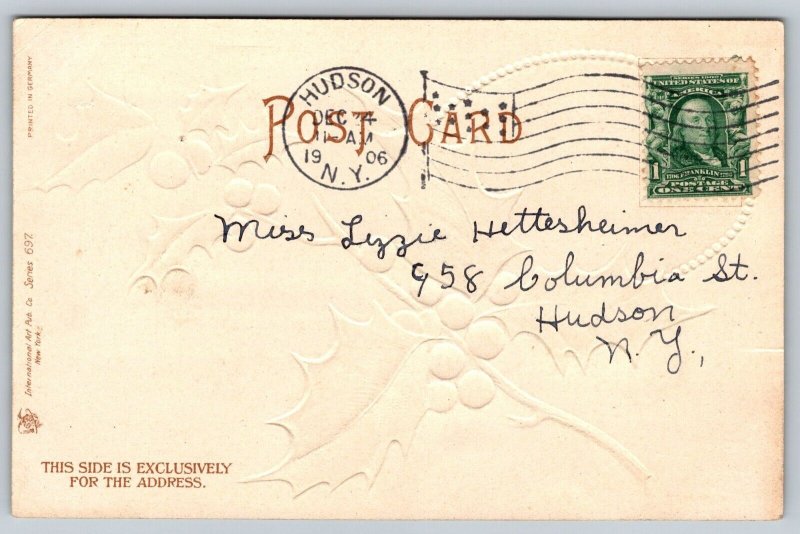 PRINTED IN GERMANY
POST CARD
HUDSON
DEC
AM
19 06
N.Y.
SERIES 1902
UNITED STATES OF
AMERICA
1 FRANKLIN 1
POSTAGE
ONE CENT
Miss Lizzie Hettesheimer
958 Columbia St.
Hudson
N.Y.,
International Art Pub. Co. Series 697.
New York:
THIS SIDE IS EXCLUSIVELY
FOR THE ADDRESS.